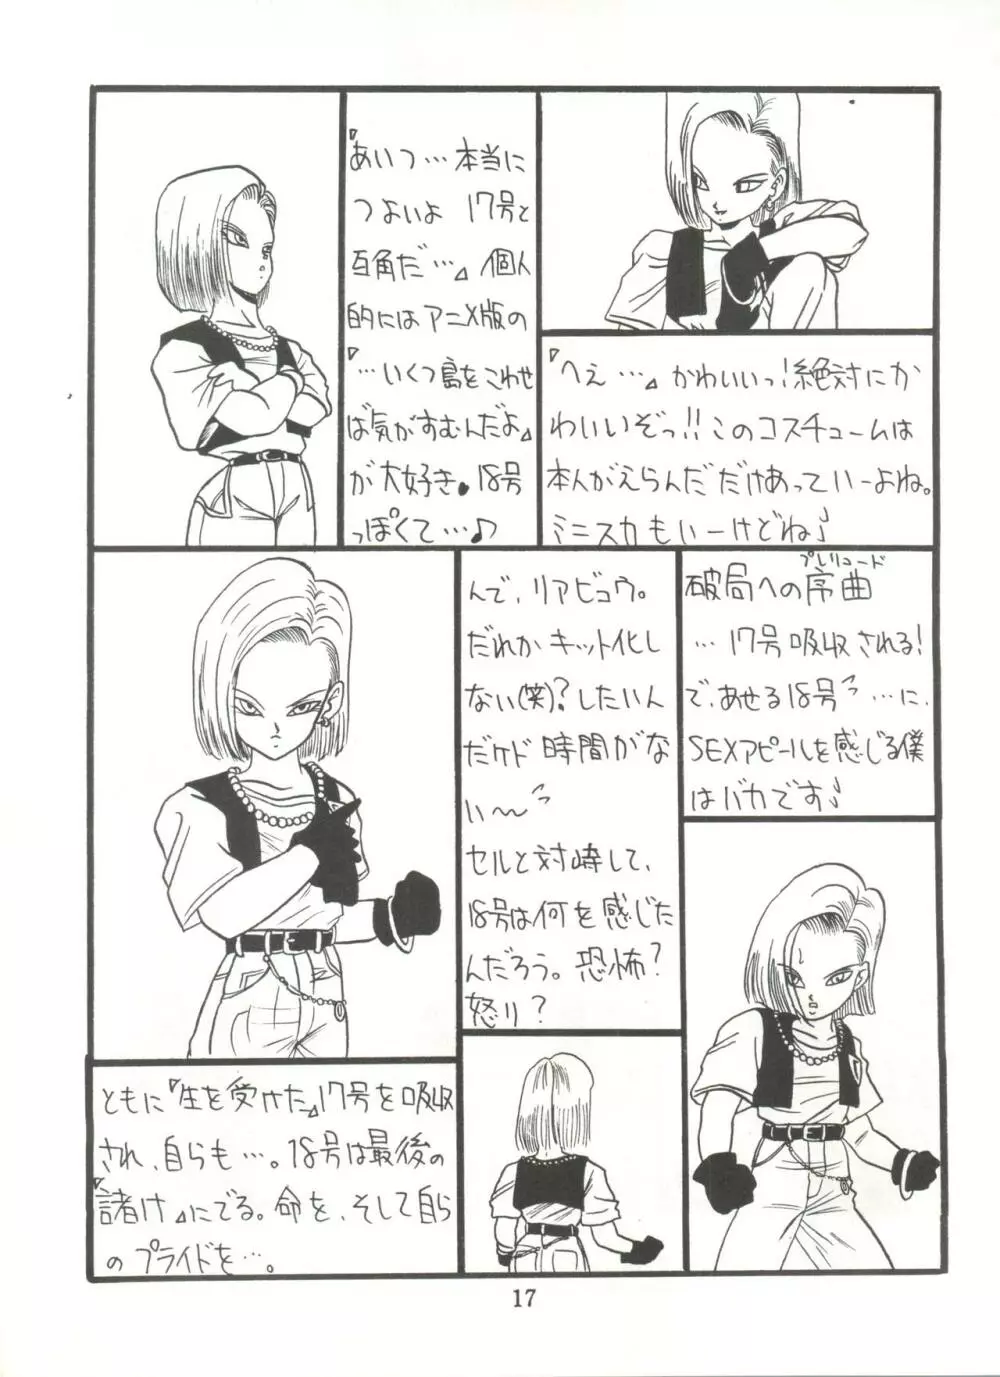 『あいつ…本当に
つよいよ 17号と
互角だ…』個人
的にはアニメ版の
『…いくつ島をこわせ
ば気がすむんだよ』
が大好き。18号
っぽくて…♪
『へぇ…』かわいいっ!絶対にか
わいいぞっ!!このコスチュームは
本人がえらんだだけあっていーよね。
ミニスカもいーけどね♪
破局への序曲
プレリュード
…17号吸収される!
で、あせる18号…に、
SEXアピールを感じる僕
はバカです♪
んで、リアビュウ。
だれかキット化し
ない(笑)?したいん
だケド時間がな
い〜
セルと対峙して、
18号は何を感じた
んだろう。恐怖?
怒り?
ともに『生を受けた』17号を吸収
され、自らも…。18号は最後の
『諸け』にでる。命を、そして自ら
のプライドを…。
17